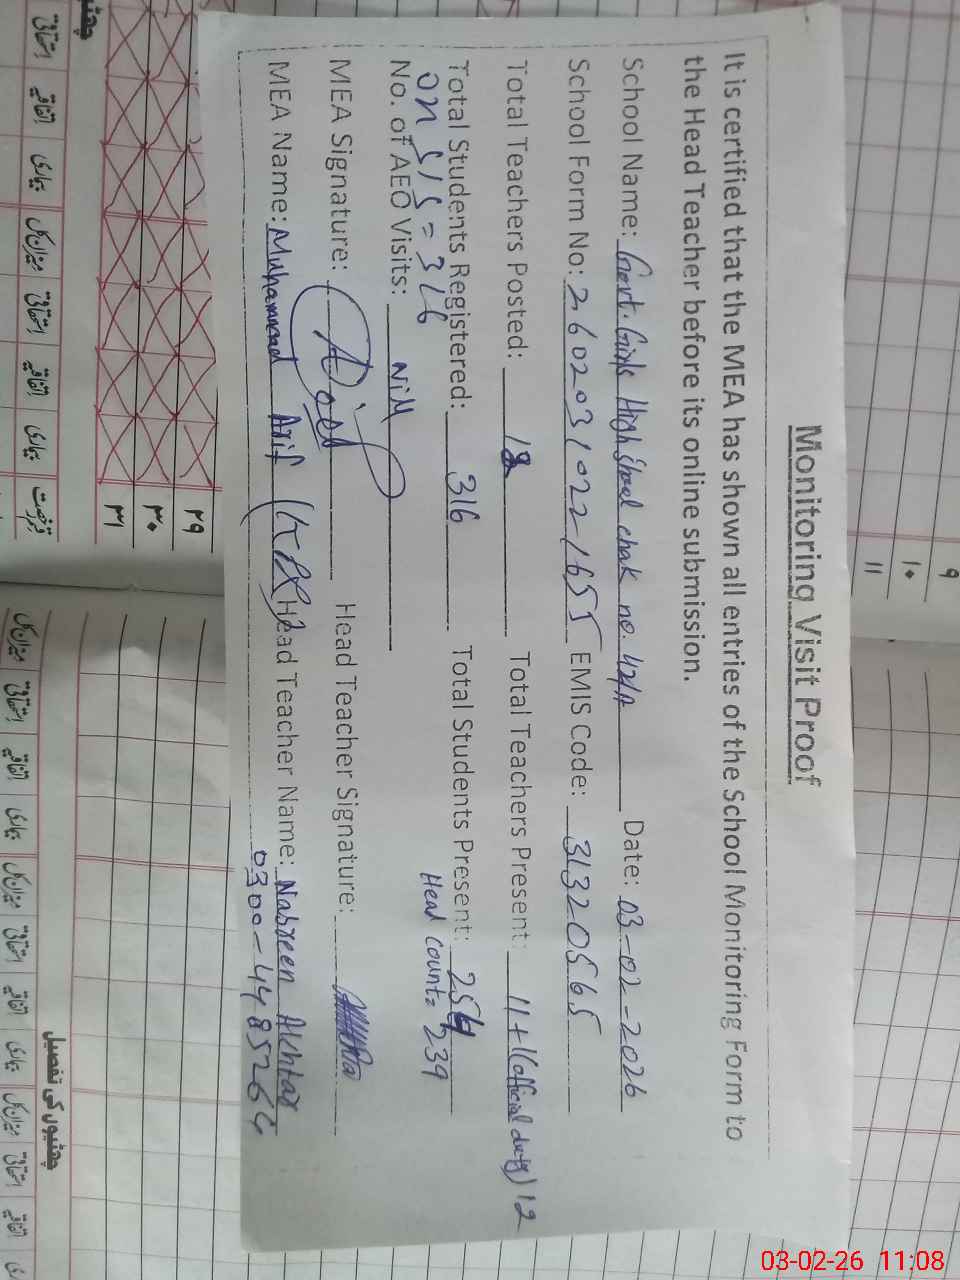 Monitoring Visit Proof
It is certified that the MEA has shown all entries of the School Monitoring Form to
the Head Teacher before its online submission.
School Name: Govt. Girls High School chak no. 42/A Date: 03-02-2026
School Form No: 2,602031022 1655 EMIS Code: 31320565
Total Teachers Posted: 12 Total Teachers Present: 11+1(official duty) 12
Total Students Registered: 316 Total Students Present: 254
on SIS = 316 Head count= 239
No. of AEO Visits: Nill
MEA Signature: Head Teacher Signature:
MEA Name: Muhammad Arif Head Teacher Name: Nasreen Akhtar
0300-4485266
چھٹیوں کی تفصیل
اتفاقیہ
بیماری
میزان کل
استحقاقی
اتفاقیہ
بیماری
میزان کل
استحقاقی
اتفاقیہ
بیماری
۲۹
۳۰
۳۱
۹
۱۰
۱۱
03-02-26 11:08